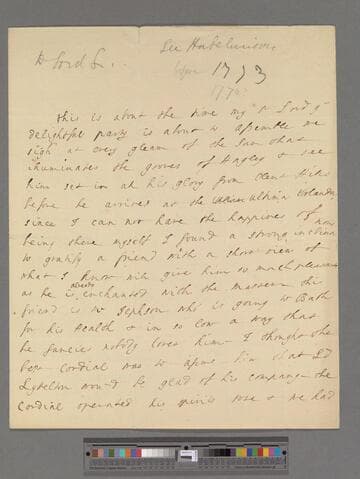 before 1773
177
this is about the time my Dr Lord yr
delightful party is about to assemble me
sigh at every gleam of the Sun that
illuminates the groves of Hagley & see
him set in all his glory from Clent hills
before he arrives at the Ultima
since I can not have the happiness of
being there myself I found a strong inclina now
to gratify a friend with a short view of
what I know will give him so much pleasure
as he is already enchanted with the
friend is Mr Jephson who is going to Bath
for his health & in so low a way that
he fancies nobody loves him I thought the
best cordial was to assure him that Ld
Lyttelton would be glad of his company the
Cordial operated his spirits rose & we had